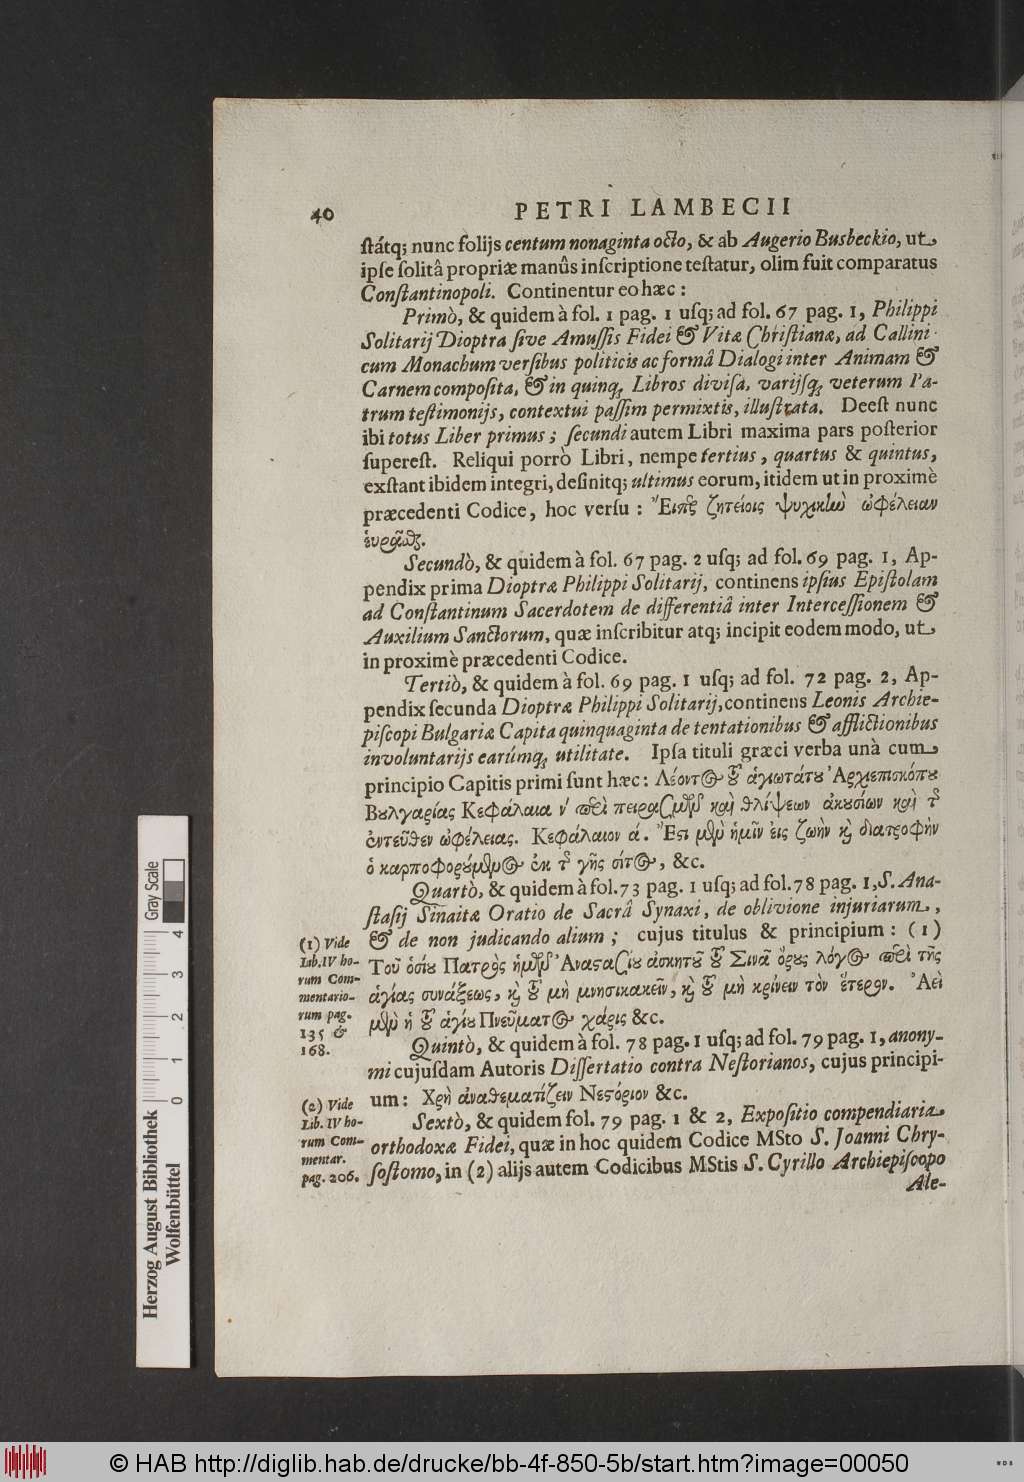 40 PETRI LAMBECII
ſtátq; nunc folijs centum nonaginta octo, & ab Augerio Busbeckio, ut
ipſe ſolitâ propriæ manûs inſcriptione teſtatur, olim fuit comparatus
Conſtantinopoli. Continentur eo hæc:
Primò, & quidem à fol. 1 pag. 1 uſq; ad fol. 67 pag. 1, Philippi
Solitarij Dioptra ſive Amuſſis Fidei & Vitæ Chriſtianæ, ad Callini-
cum Monachum verſibus politicis ac formâ Dialogi inter Animam &
Carnem compoſita, & in quinq; Libros diviſa, varijſq; veterum Pa-
trum teſtimonijs, contextui paſſim permixtis, illuſtrata. Deeſt nunc
ibi totus Liber primus; ſecundi autem Libri maxima pars poſterior
ſupereſt. Reliqui porrò Libri, nempe tertius, quartus & quintus,
exſtant ibidem integri, deſinitq; ultimus eorum, itidem ut in proximè
præcedenti Codice, hoc verſu: Ἔιπερ ζητείοις ψυχικὴν ὠφέλειαν
ἑυρᾶσθαι.
Secundò, & quidem à fol. 67 pag. 2 uſq; ad fol. 69 pag. 1, Ap-
pendix prima Dioptræ Philippi Solitarij, continens ipſius Epiſtolam
ad Conſtantinum Sacerdotem de differentiâ inter Interceſſionem &
Auxilium Sanctorum, quæ inſcribitur atq; incipit eodem modo, ut
in proximè præcedenti Codice.
Tertiò, & quidem à fol. 69 pag. 1 uſq; ad fol. 72 pag. 2, Ap-
pendix ſecunda Dioptræ Philippi Solitarij, continens Leonis Archie-
piſcopi Bulgariæ Capita quinquaginta de tentationibus & afflictionibus
involuntarijs earúmq; utilitate. Ipſa tituli græci verba unà cum
principio Capitis primi ſunt hæc: Λέοντος τοῦ ἁγιωτάτου Ἀρχιεπισκόπου
Βουλγαρίας Κεφάλαια ν´ περὶ πειρασμῶν καὶ θλίψεων ἀκουσίων καὶ τῆς
ἐντεῦθεν ὠφέλειας. Κεφάλαιον ά. Ἔστι μὲν ἡμῖν ἐις ζωὴν καὶ διατροφὴν
ὁ καρποφορούμενος ἐκ τῆς γῆς σίτος, &c.
Quartò, & quidem à fol. 73 pag. 1 uſq; ad fol. 78 pag. 1, S. Ana-
ſtaſij Sinaitæ Oratio de Sacrâ Synaxi, de oblivione injuriarum,
& de non judicando alium; cujus titulus & principium: (1)
Τοῦ ὁσίου Πατρὸς ἡμῶν Ἀναστασίου ἀσκητοῦ τοῦ Σινᾶ ὄρους λόγος περὶ τῆς
ἁγίας συνάξεως, καὶ τοῦ μὴ μνησικακεῖν, καὶ τοῦ μὴ κρίνειν τὸν ἕτερον. Ἀεὶ
μὲν ἡ τοῦ ἁγίου Πνεῦματος χάρις &c.
(1) Vide
Lib. IV ho-
rum Com-
mentario-
rum pag.
135 &
168.
Quintò, & quidem à fol. 78 pag. 1 uſq; ad fol. 79 pag. 1, anony-
mi cujuſdam Autoris Diſſertatio contra Neſtorianos, cujus principi-
um: Χρὴ ἀναθεματίζειν Νεστόριον &c.
Sextò, & quidem fol. 79 pag. 1 & 2, Expoſitio compendiaria
orthodoxæ Fidei, quæ in hoc quidem Codice MSto S. Joanni Chry-
ſoſtomo, in (2) alijs autem Codicibus MStis S. Cyrillo Archiepiſcopo
Ale-
(2) Vide
Lib. IV ho-
rum Com-
mentar.
pag. 206.
Herzog August Bibliothek
Wolfenbüttel
Gray Scale
0 1 2 3 4
© HAB http://diglib.hab.de/drucke/bb-4f-850-5b/start.htm?image=00050